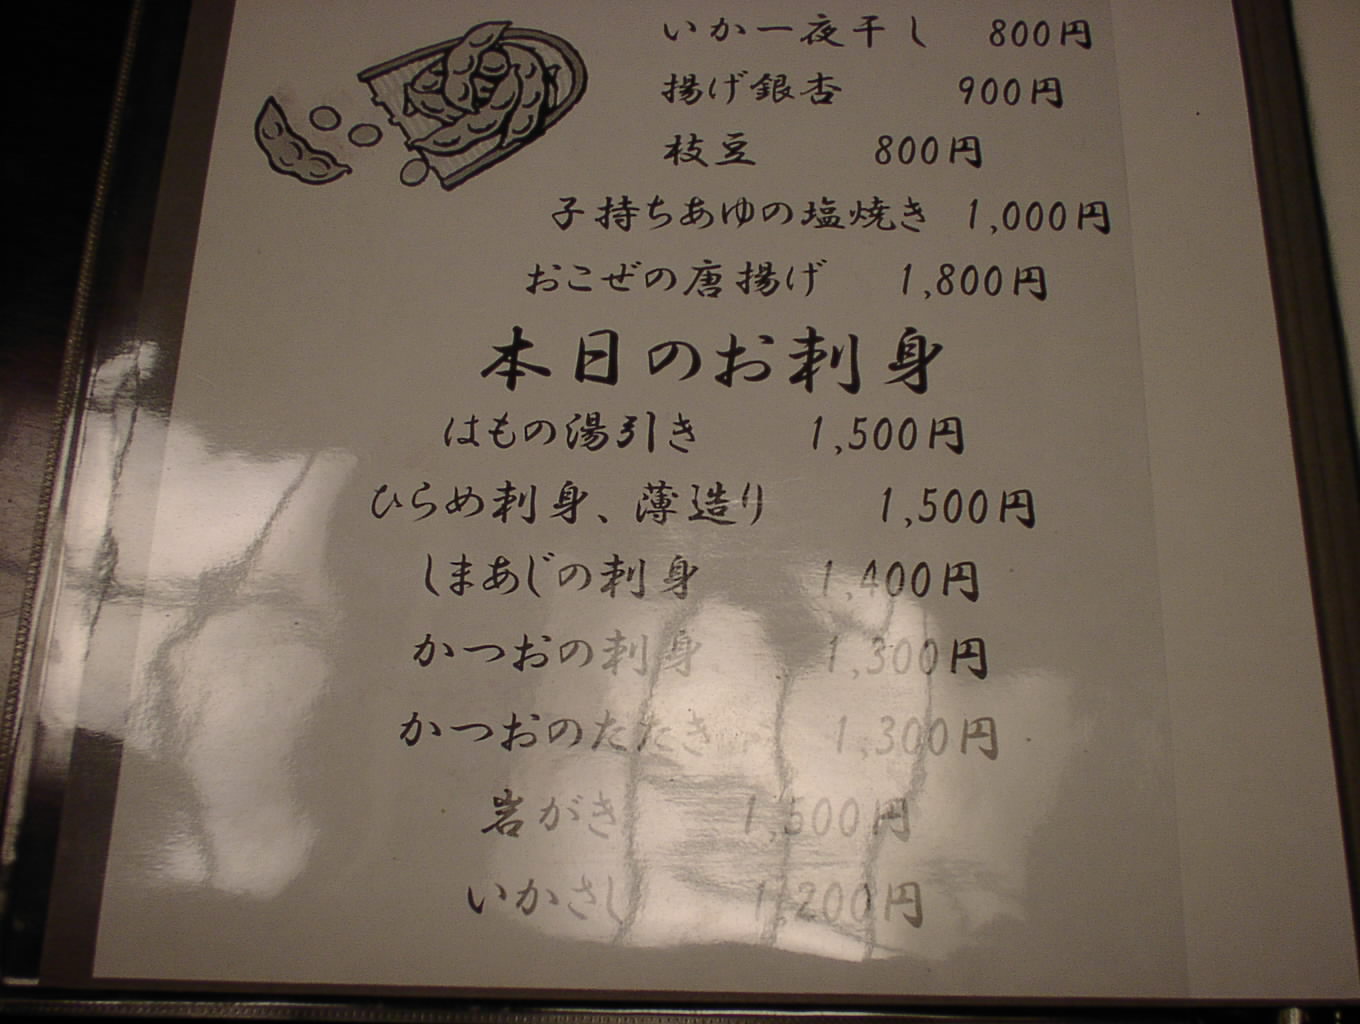 いか一夜干し 800円
揚げ銀杏 900円
枝豆 800円
子持ちあゆの塩焼き 1,000円
おこぜの唐揚げ 1,800円
本日のお刺身
はもの湯引き 1,500円
ひらめ刺身、薄造り 1,500円
しまあじの刺身 1,400円
かつおの刺身 1,300円
かつおのたたき 1,300円
岩がき 1,500円
いかさし 1,200円